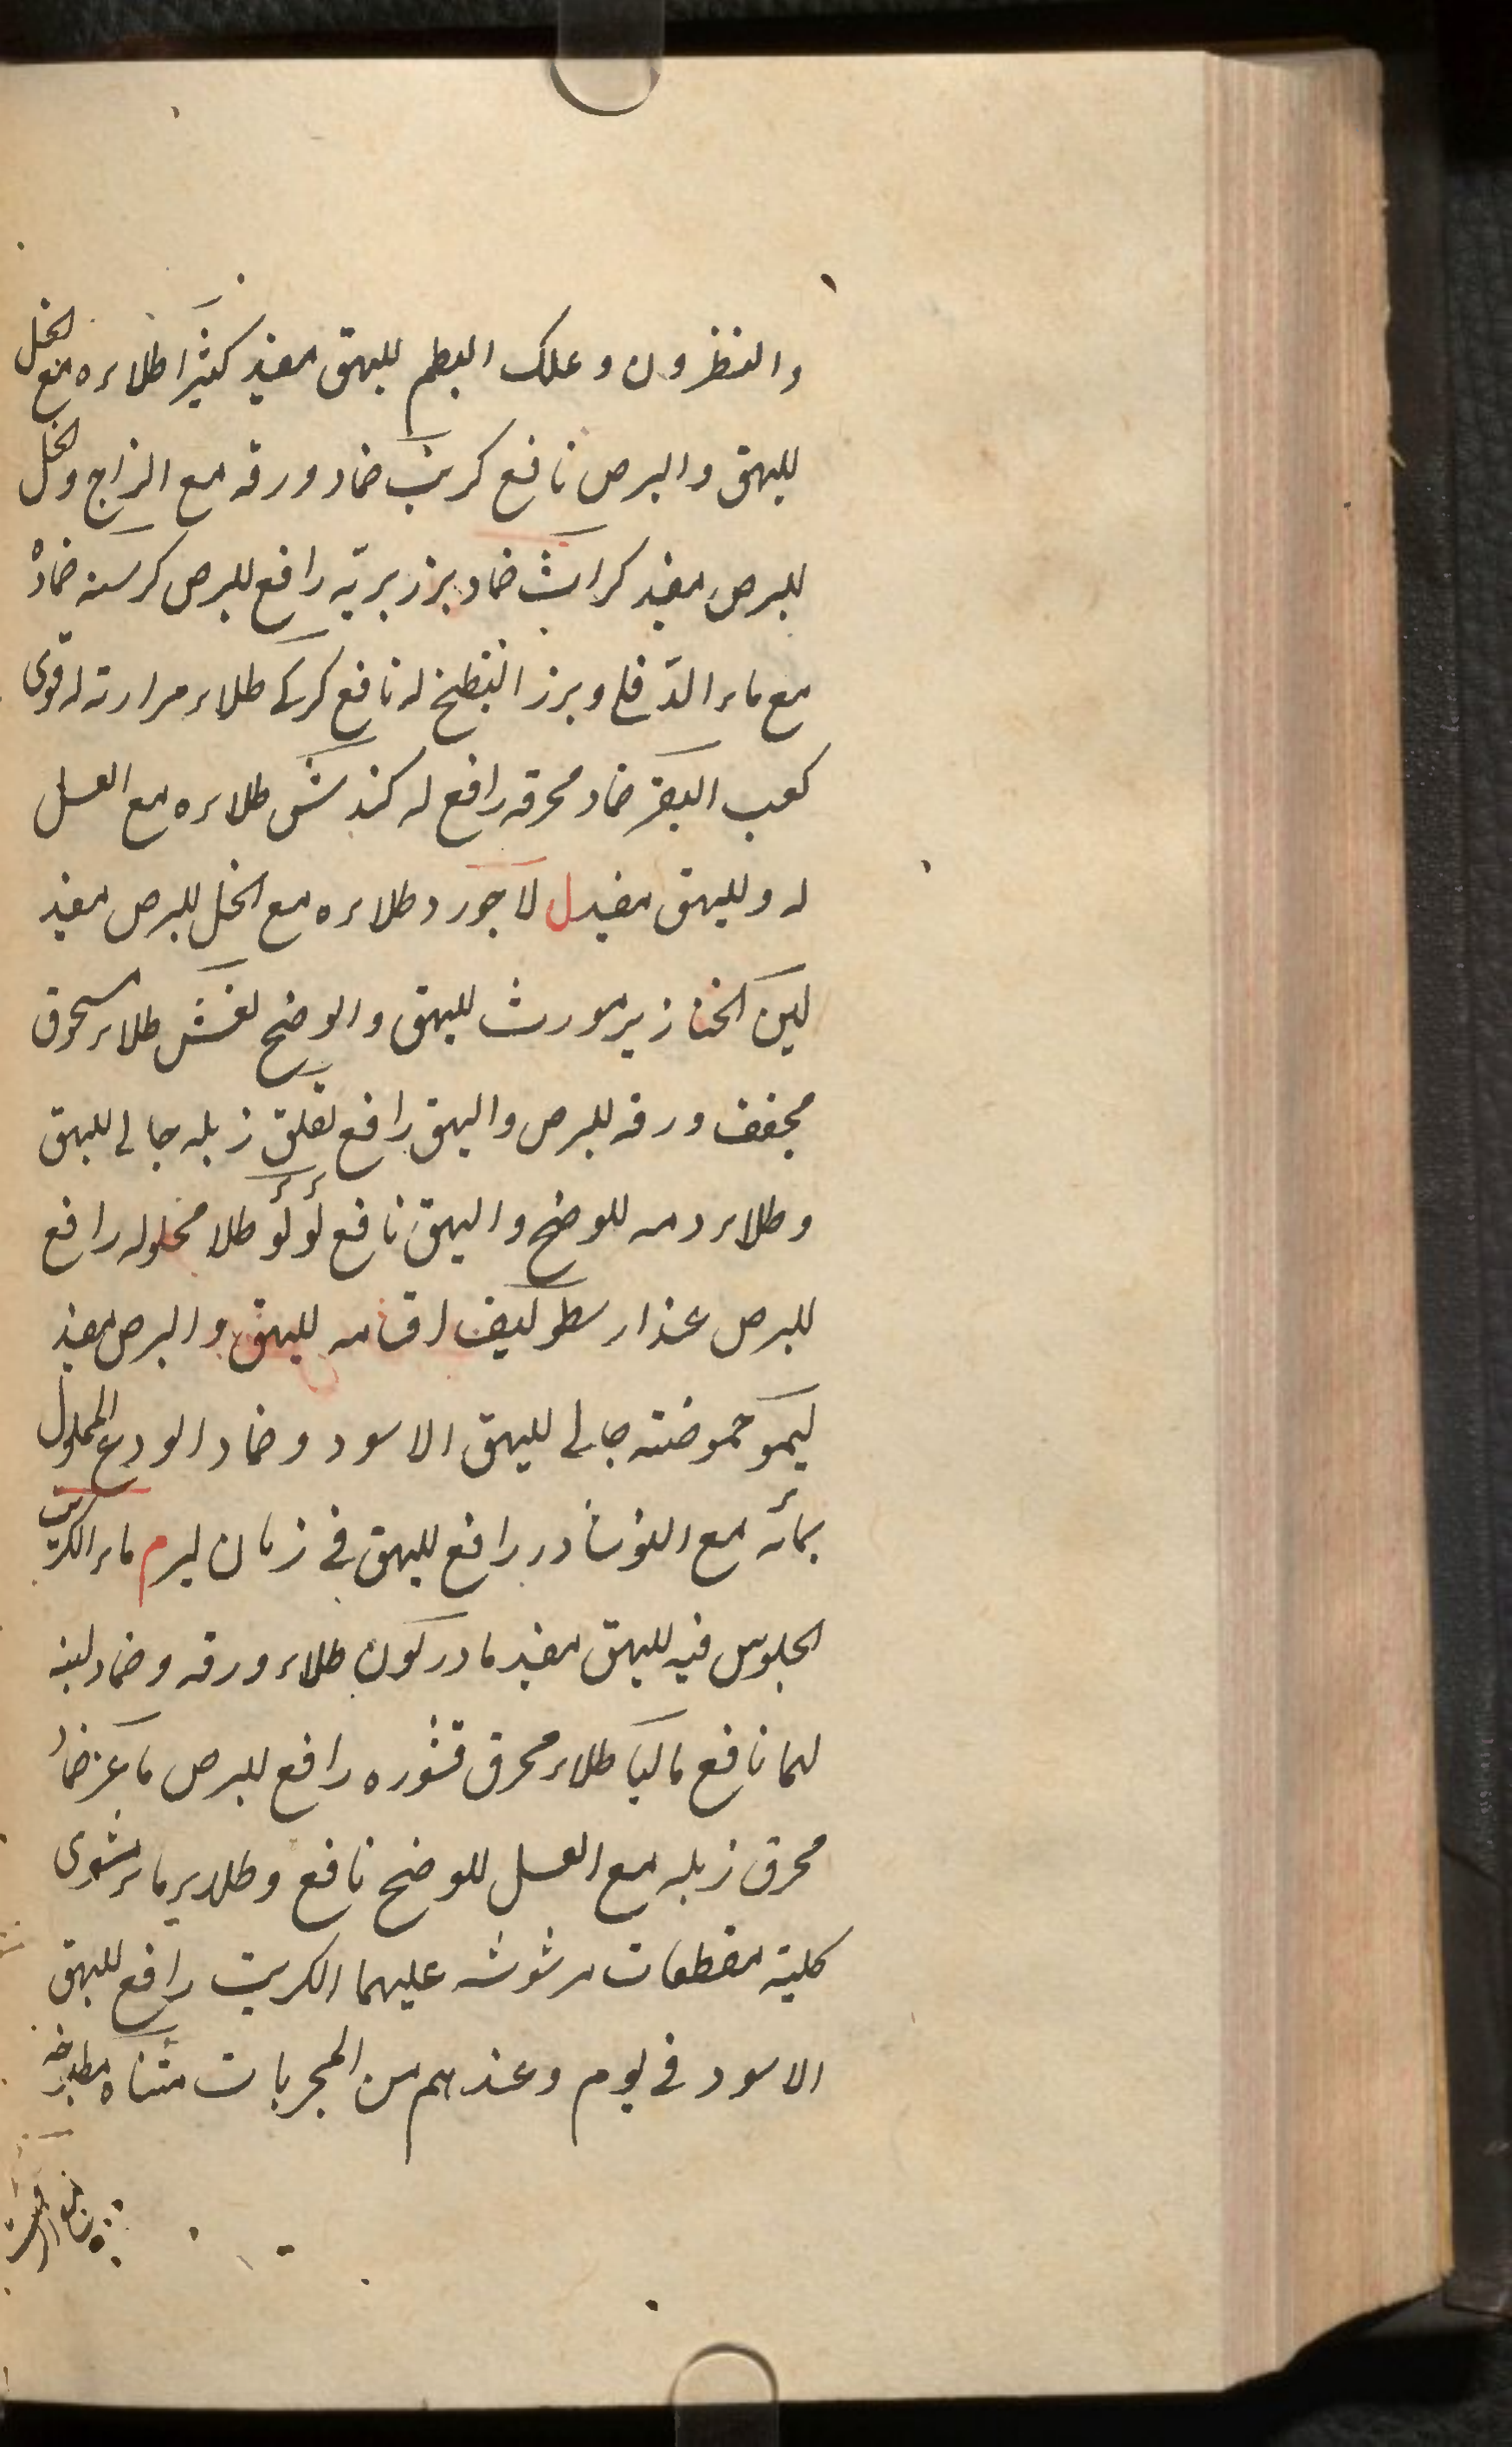 والنظرون وعلك البطم للبهق مفيد كثيرا طلاءه مع الخل
للبهق والبرص نافع كرنب ضماد ورقه مع الزاج والخل
للبرص مفيد كراث ضماد بزر بريّه رافع للبرص كرسنه ضمادْ
مع ماء الدّفلى وبرز البطيخ له نافع كركى طلاء مرارته له قوى
كعب البقر ضماد محرقه رافع له كندش طلاءه مع العسل
له وللبهق مفيد ل لاجورد طلاءه مع الخل للبرص مفيد
لبن الخنازير مورث للبهق والوضح طلاء مسحوق
مجفف ورقه للبرص والبهق رافع لقلق زبله جالى للبهق
وطلاء دمه للوضح والبهق نافع لؤلؤ طلا محلوله رافع
للبرص عند ارسطو ليف للبهق والبرص مفيد
ليمو حموضته جالى للبهق الاسود وضماد الودع المحلول
بمائه مع النوشادر رافع للبهق فى زمان ليرم ماء الكبريت
الجلوس فيه للبهق مفيد طلاء ورقه وضماد لبنه
لهما نافع طلاء محرق قشوره رافع للبرص ماعز ضماد
محرق زبله مع العسل للوضح نافع وطلاء ماء مشوى
كلية مقطعات مرشوشه عليهما الكبريت رافع للبهق
الاسود فى يوم وعندهم من المجربات